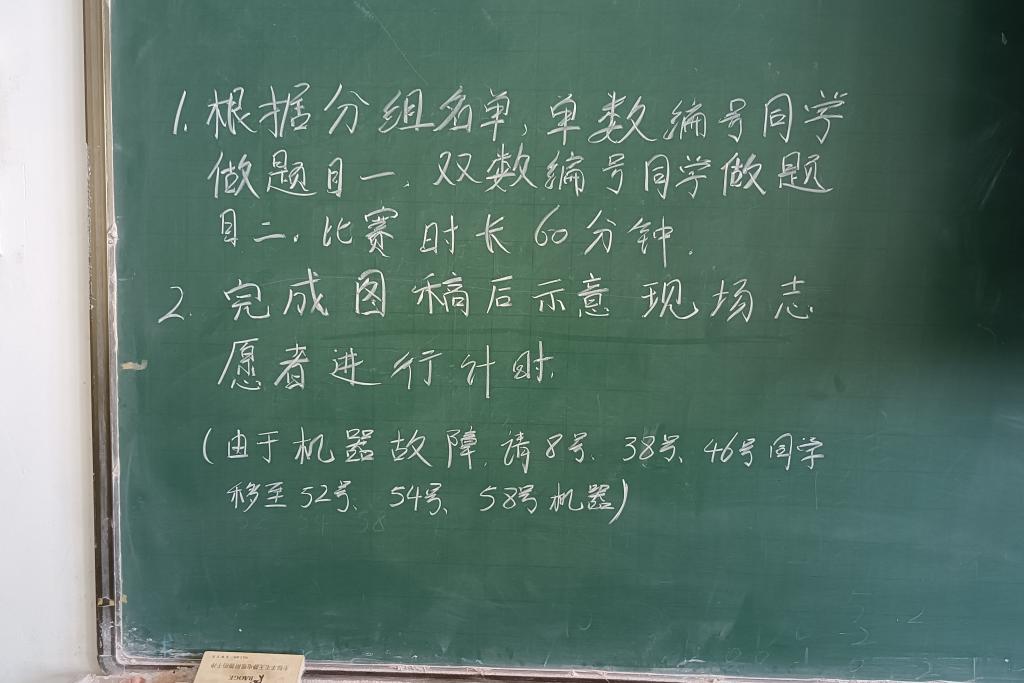 1. 根据分组名单, 单数编号同学
做题目一. 双数编号同学做题
目二. 比赛时长60分钟.
2. 完成图稿后示意现场志
愿者进行计时.
(由于机器故障, 请8号、38号、46号同学
移至52号、54号、58号机器)
52 54 58
BAOGE